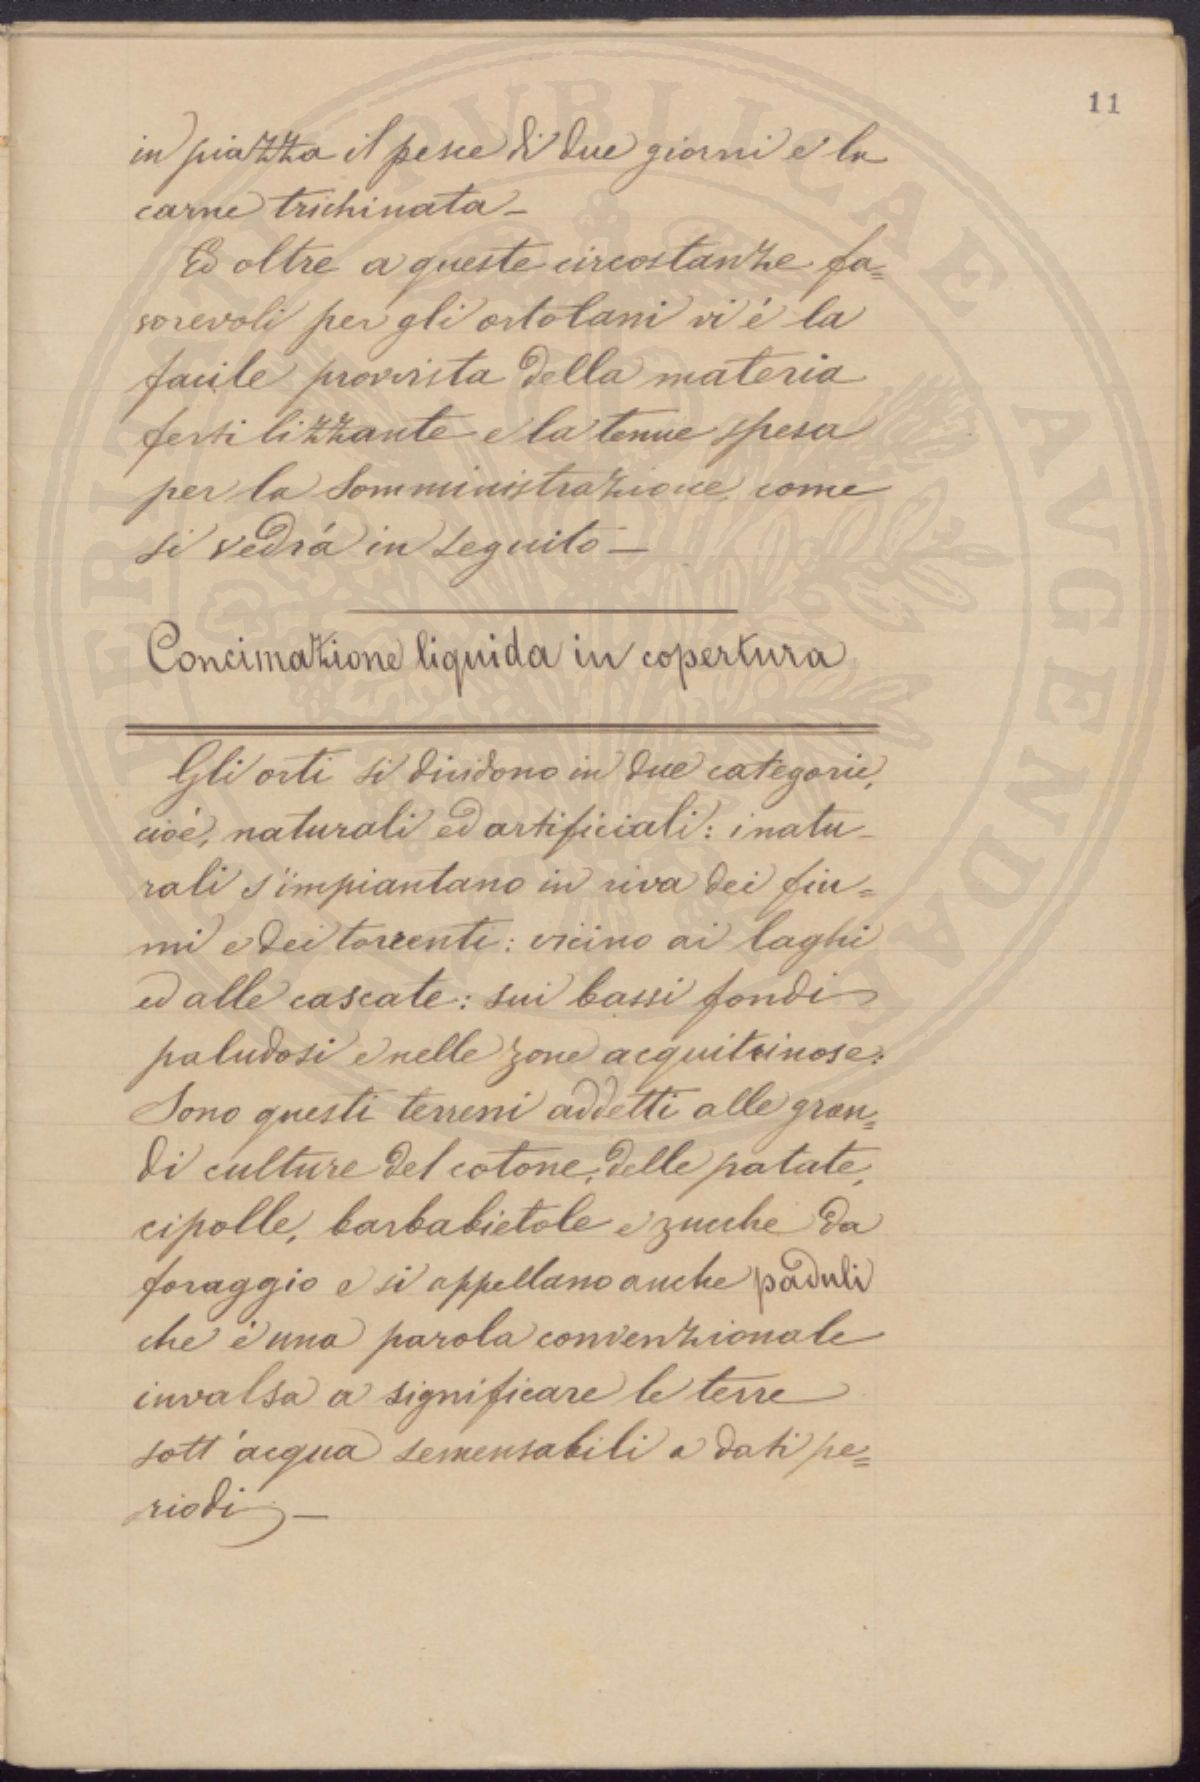 11
in piazza il pesce di due giorni e la
carne trichinata —
Ed oltre a queste circostanze fa=
vorevoli per gli ortolani vi é la
facile provvista della materia
fertilizzante e la tenue spesa
per la somministrazione, come
si vedrá in seguito —
Concimazione liquida in copertura
Gli orti si dividono in due categorie,
cioé, naturali ed artificiali: i natu-
rali s'impiantano in riva dei fiu=
mi e dei torrenti: vicino ai laghi
ed alle cascate: sui bassi fondi
paludosi e nelle zone acquitrinose:
Sono questi terreni addetti alle gran=
di culture del cotone, delle patate,
cipolle, barbabietole e zucche da
foraggio e si appellano anche paduli
che é una parola convenzionale
invalsa a significare le terre
sott'acqua semensabili a dati pe=
riodi —
PERITATI PVBLICAE AVGENDAE